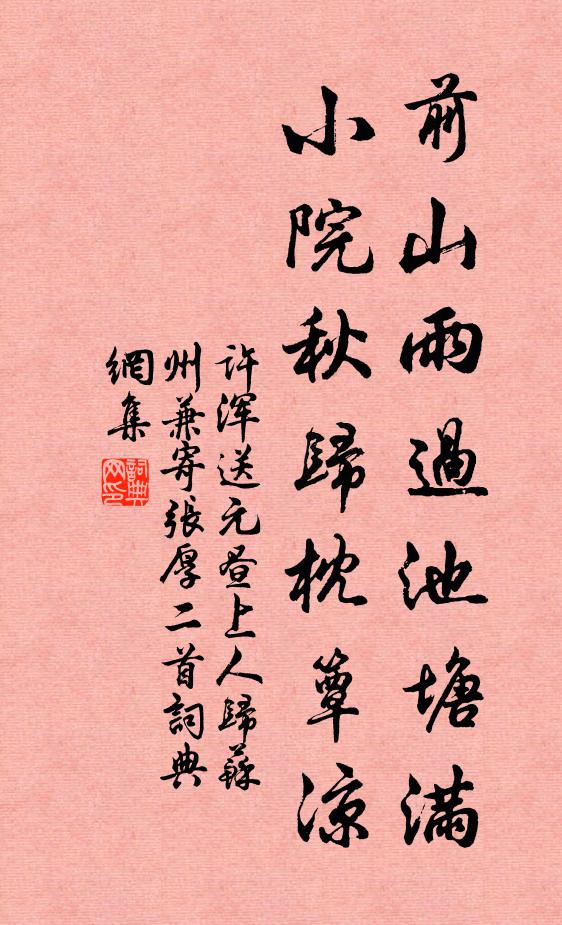 前山雨過池塘滿
小院秋歸枕簟涼
許渾送元昼上人歸蘇
州兼寄張厚二首詞典
網集
詞典
网印